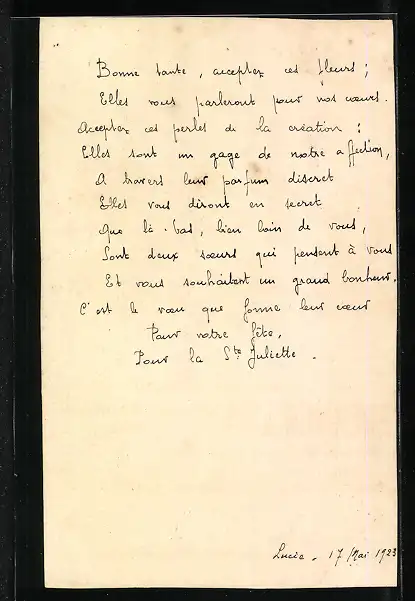 Bonne tante, acceptez ces fleurs ;
Elles vous parleront pour nos cœurs.
Acceptez ces perles de la création :
Elles sont un gage de notre affection,
A travers leur parfum discret
Elles vous diront en secret
Que là-bas, bien loin de vous,
Sont deux sœurs qui pensent à vous
Et vous souhaitent un grand bonheur.
C'est le vœu que forme leur cœur
Pour votre fête,
Pour la Ste Juliette.
Lucie. 17 Mai 1923